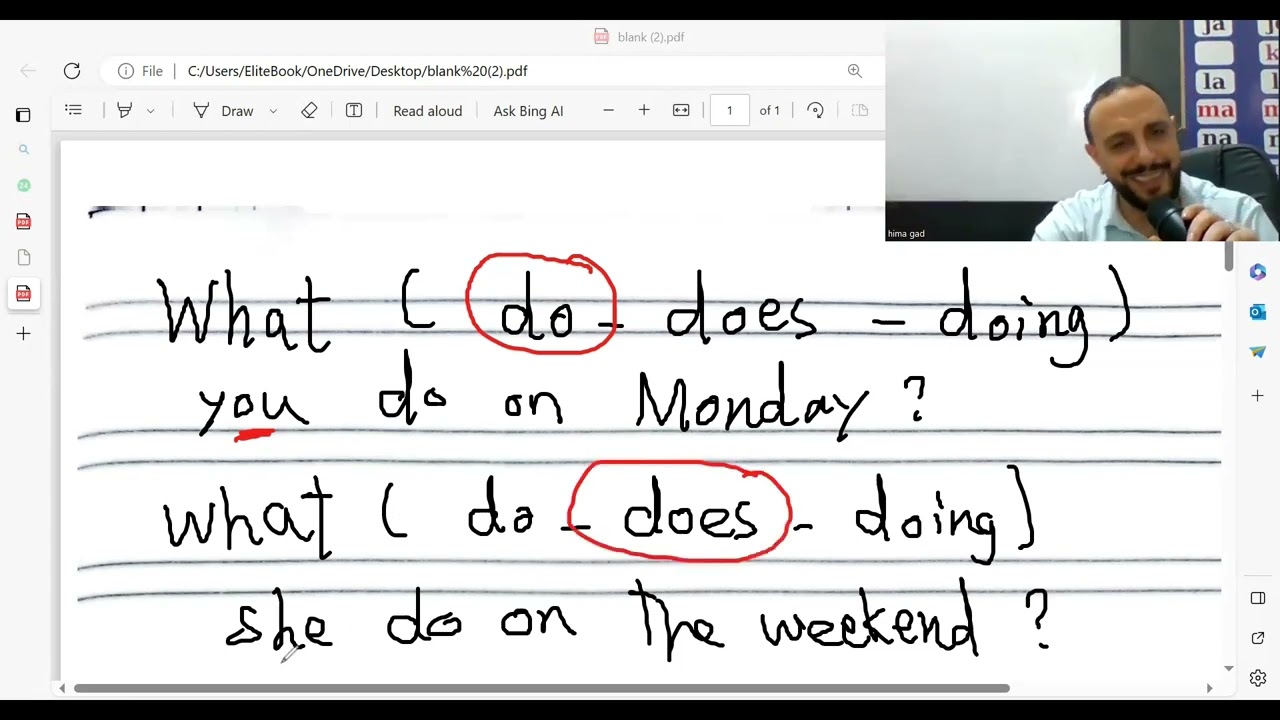 blank (2).pdf
File | C:/Users/EliteBook/OneDrive/Desktop/blank%20(2).pdf
Draw
Read aloud
Ask Bing AI
1 of 1
24
ja
k
la
ma
na
hima gad
What ( do - does - doing)
you do on Monday ?
what ( do - does - doing)
she do on the weekend ?